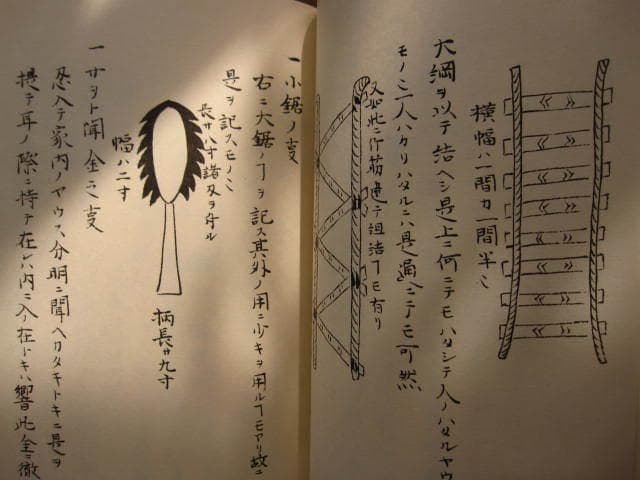 横幅ハ一間カ一間半ニ
大綱ヲ以テ結ヘシ是上ニ何ニテモハタシテ人ノハタルヤウ
モノニ一人ハカリハタルニハ是通ニテモ可然
又如此ニ行筋違テ組結フモ有リ
一小鋸ノ支
右ニ大鋸ノ ヲ記ス其外ノ用ニ少キヲ用ルフモアリ故ニ
是ヲ記スモノニ
長サ八寸諸刃ヲ付ル
幅ハ二寸
柄長サ九寸
一サヲト聞金之支
忍入テ家内ノヤウス分明ニ聞ヘカタキトキニ是ヲ
提テ耳ノ際ニ持テ在レハ内ニ人在トキハ響此金ニ徹